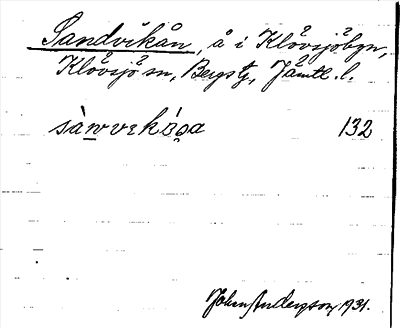 Sandvikån, å i Klövsjöbyn,
Klövsjö sn, Bergs tg, Jämtl. l.
132
Johan Anderson, 1931.